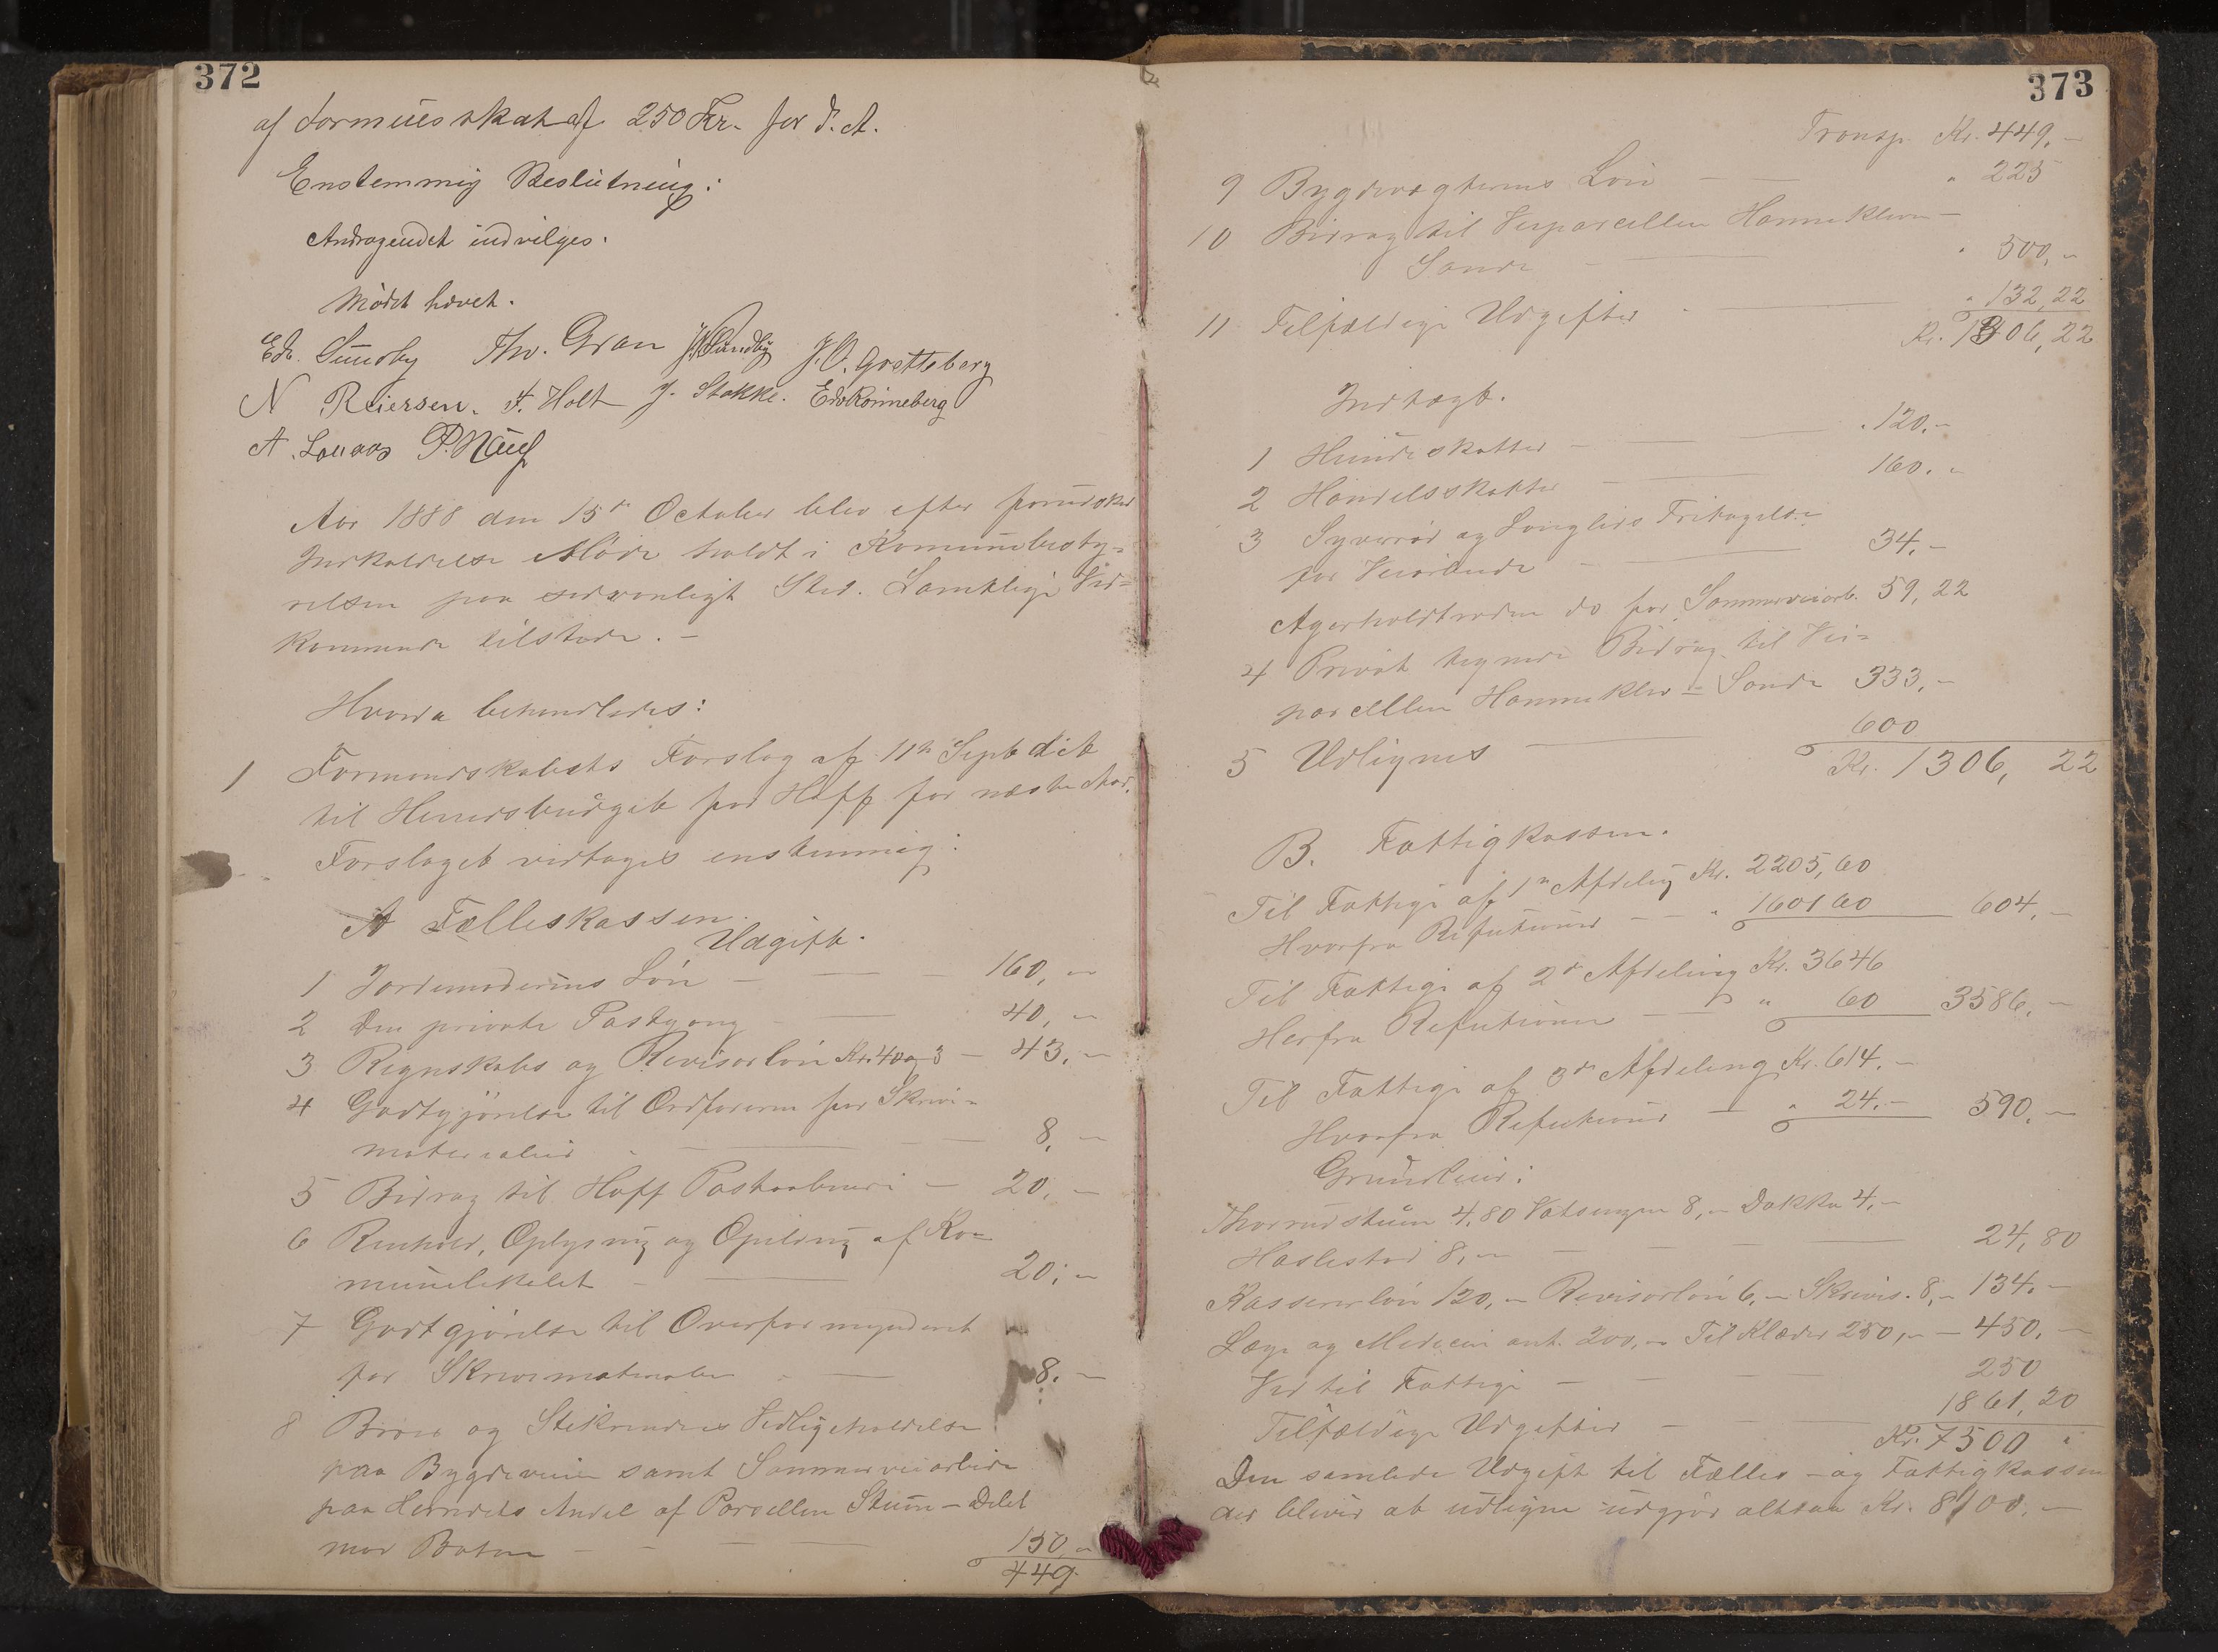 372
af Formuesskat af 250 Kr. for d. A.
Enstemmig Beslutning:
Andragendet indvilges.
Mødet hævet.
Edv. Sundby Thv. Gran J. O. Gretteberg
N Reiersen. F. Holt J. Stokke. Edv Rönneberg
A. P. Nauf
Aar 1888 den 15de October blev efter forudsked
Indkaldelse Møde holdt i Komunebesty-
relsen paa sedvanligt Sted. Samtlige Ved-
kommende tilstede. -
Hvorda behandledes:
1 Formandskabets Forslag af 11te Septb
til Herredsbudget for Hoff for næste Aar.
Forslaget vedtages enstemmig:
A Fælleskassen.
Udgift.
1 Jordemoderens Løn - 160, -
2 Den private Postgang - 40, -
3 Regnskabs og Revisorløn Kr. 40 og 3 - 43, -
4 Godtgjörelse til Ordføreren for Skrive-
materialier - 8, -
5 Bidrag til Hoff Postaabneri - 20, -
6 Renhold, Oplysning og Opilding af Ko-
munelokalet - 20, -
7 Godtgjörelse til Overformynderiet
for Skrivematerialer - 8. -
8 Broers og Stikrenders Vedligeholdelse
paa Bygdeveien samt Sommerveiarbeide
paa Herredets Andel af Parcellen Stuen - Delet
mod Botne - 150, -
449
373
Transp. Kr. 449, -
9 Bygdevægterens Løn - " 225
10 Bidrag til Veiparcellen Hanneklev -
Sande - " 500, -
11 Tilfældige Udgifter - " 132, 22
Kr. 1306, 22
Indtægt.
1 Hundeskatter - 120. -
2 Handelsskatter 160. -
3 og Fritagelse
for Veiarbeide - 34, -
Agerholdtroden do for Sommerveiarb. 59, 22
4 Privat tegnede Bidrag til Vei-
parcellen Hanneklev - Sande 333, -
5 Udlignes 600
Kr. 1306, 22
B. Fattigkassen.
Til Fattige af 1ste Afdeling Kr. 2205,60
Hvorfra Refusioner - - " 1601 60 604, -
Til Fattige af 2den Afdeling Kr. 3646
Herfra Refusioner - " 60 3586, -
Til Fattige af 3die Afdeling Kr. 614. -
Hvorfra Refusioner - " 24. - 590, -
Grundleie:
Thorrudstuen 4,80 Vatsengen 8, - Dokka 4, -
Haslestad 8, - - - 24, 80
Kassererløn 120, - Revisorløn 6, - Skrivs. 8, - 134. -
Læge og Medicin ant. 200, - Til Klæder 250, - - 450, -
Ved til Fattige - - 250
Tilfældige Udgifter - 1861, 20
Kr. 7500 "
Den samlede Udgift til Fælles - og Fattigkassen
der bliver at udligne udgjør altsaa Kr. 8100, -